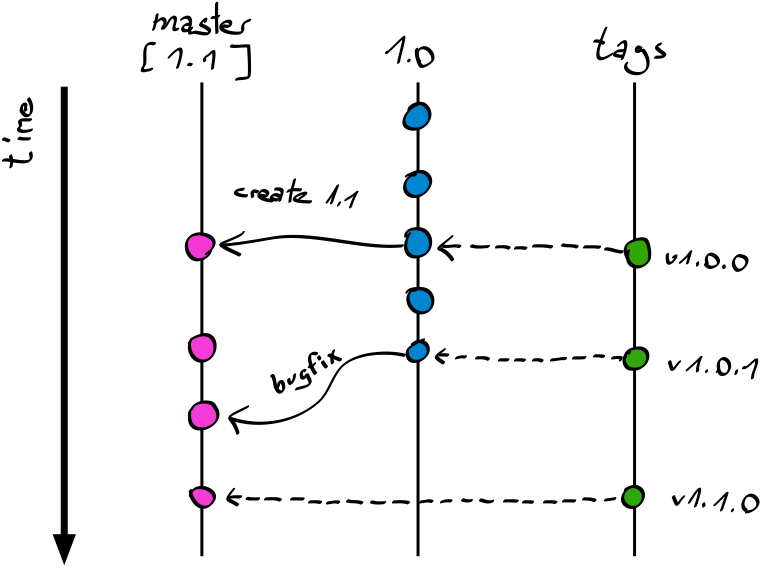 master
[1.1]
1.0
tags
time
create 1.1
v1.0.0
bugfix
v1.0.1
v1.1.0